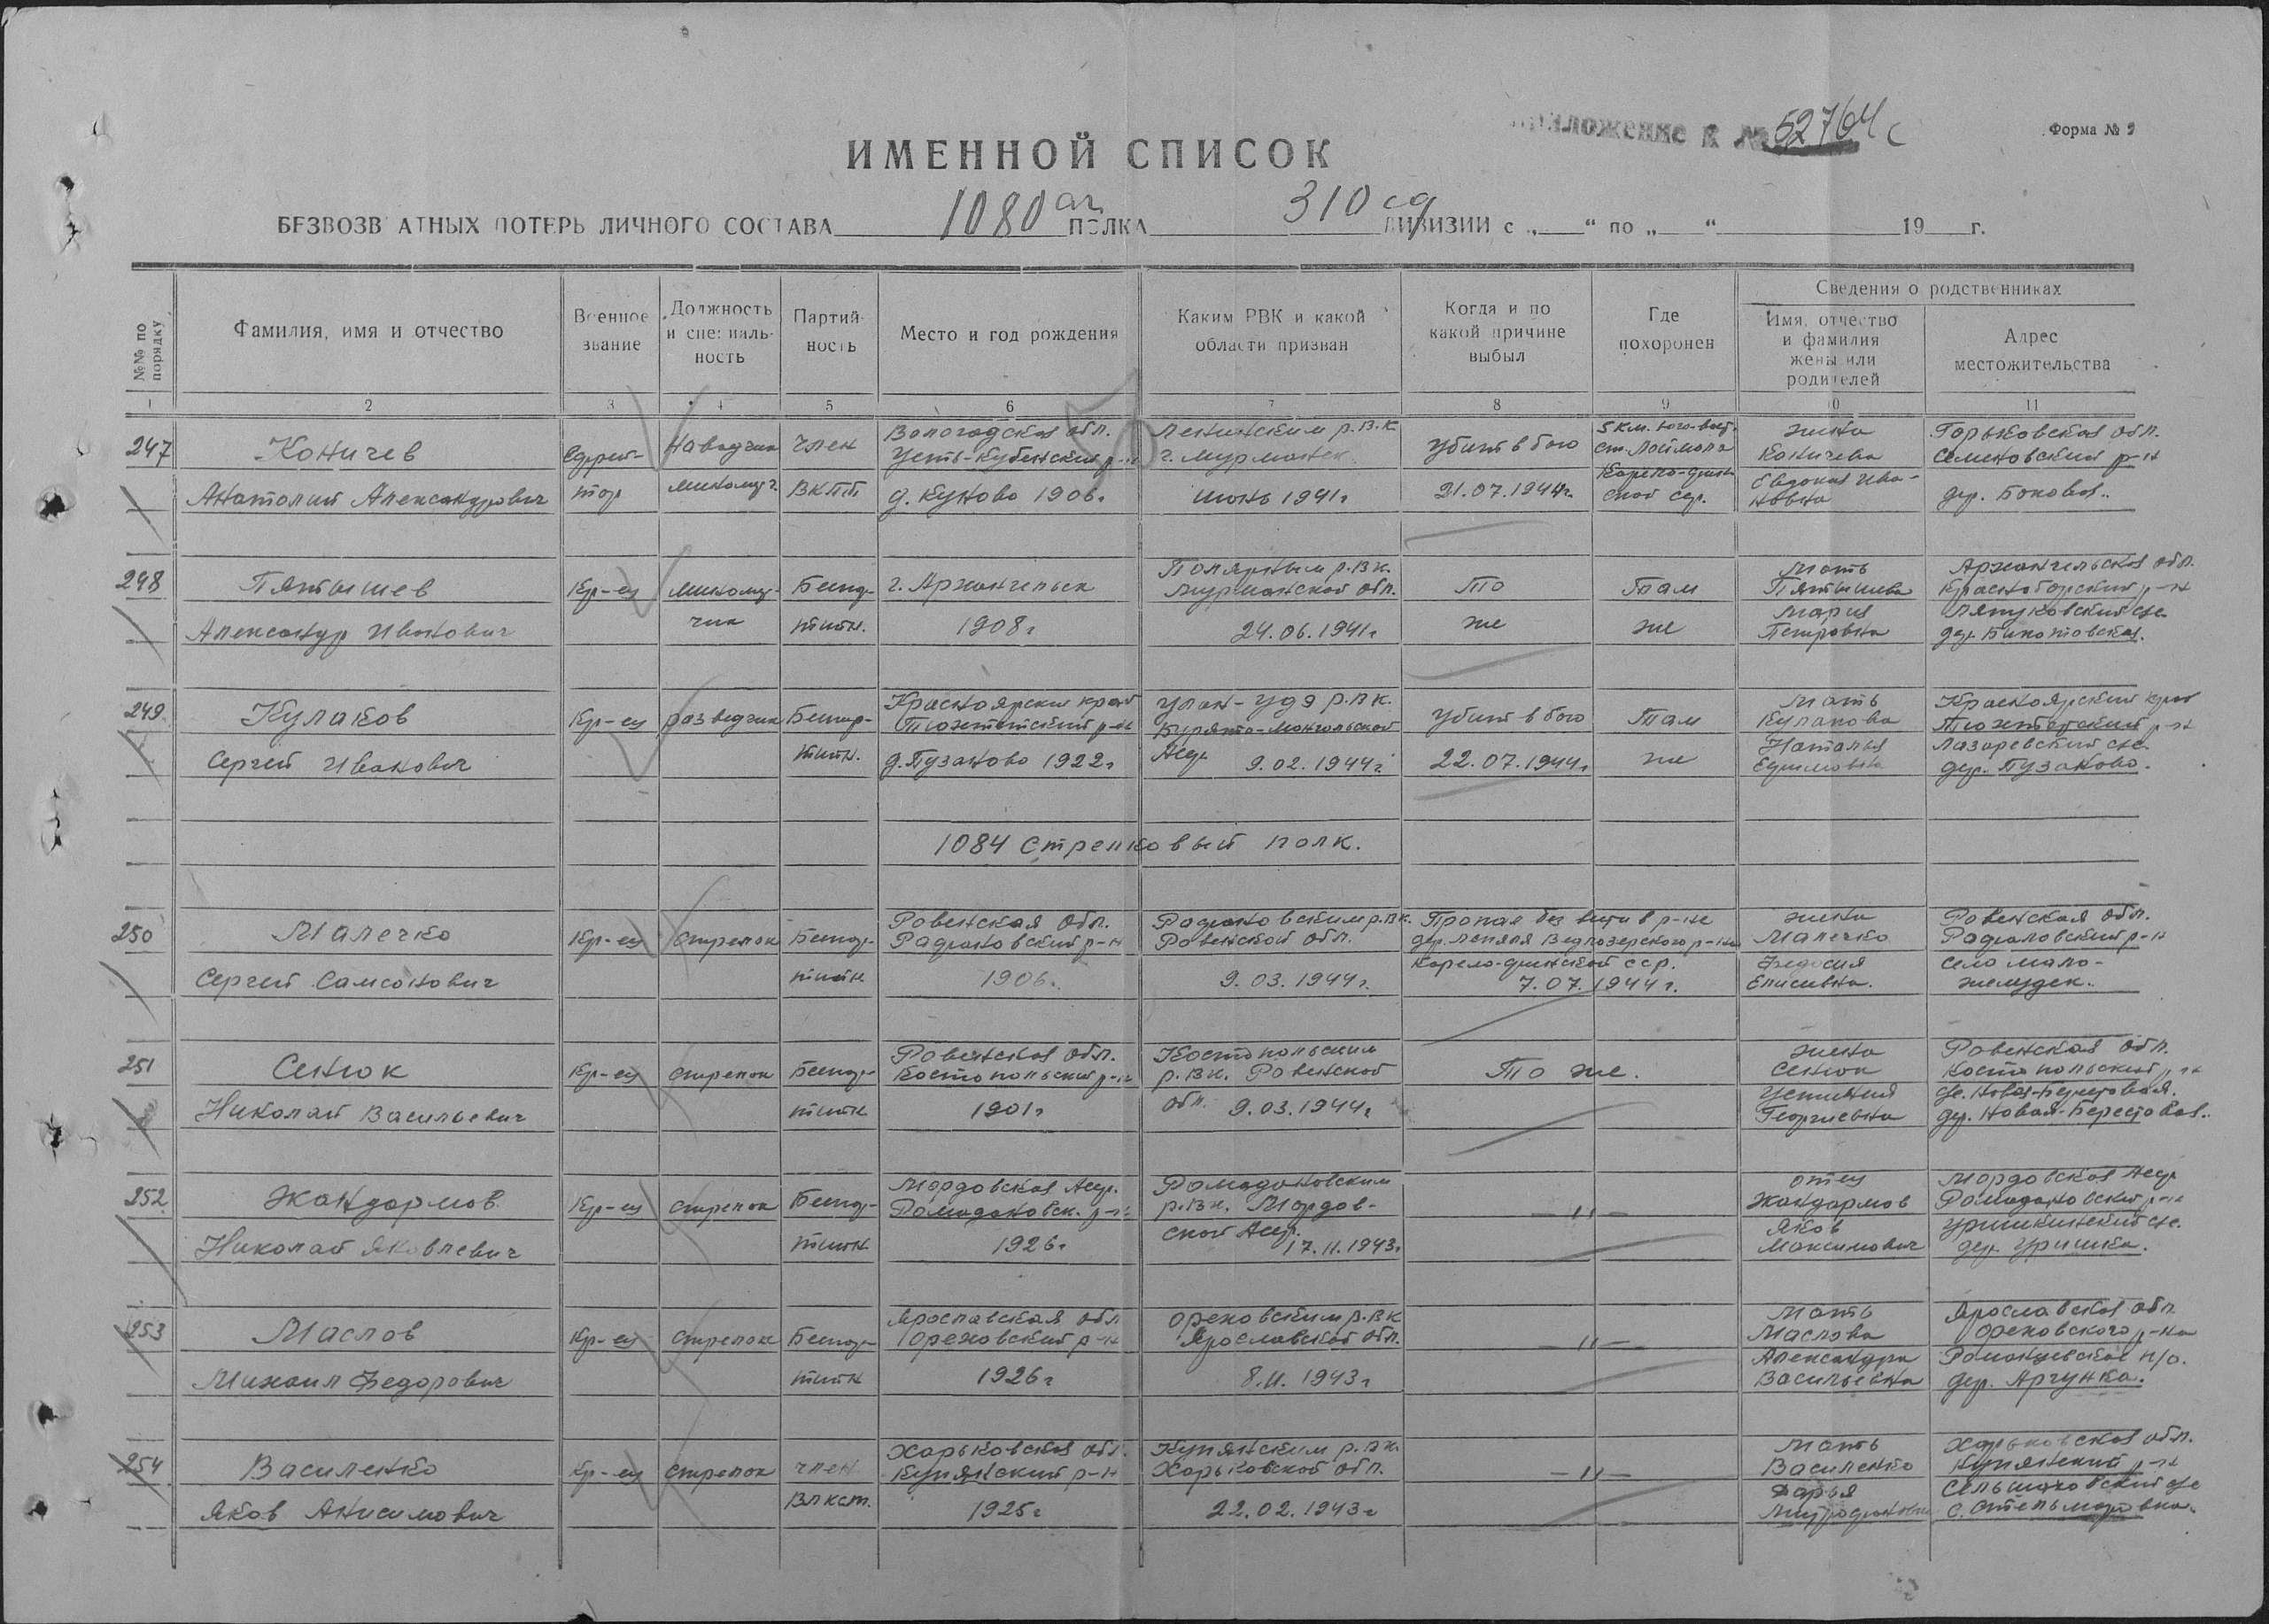 приложение к № 52764с
Форма № 2
ИМЕННОЙ СПИСОК
БЕЗВОЗВ АТНЫХ ПОТЕРЬ ЛИЧНОГО СОСТАВА 1080 ап ПОЛКА 310 сд ДИВИЗИИ с „ “ по „ “ 19 г.
№№ по порядку
Фамилия, имя и отчество
Военное звание
Должность и специаль-ность
Партий-ность
Место и год рождения
Каким РВК и какой области призван
Когда и по какой причине выбыл
Где похоронен
Сведения о родственниках
Имя, отчество и фамилия жены или родителей
Адрес местожительства
1 2 3 4 5 6 7 8 9 10 11
247
Коничев
Анатолий Александрович
Ефрей-
тор
Наводчик
миномет.
Член
ВКПб
Вологодская обл.
Усть-Кубенский р-н
д. Куново 1906г
Ленинским р.в.к
г. Мурманск
июнь 1941г
Убит в бою
21.07.1944г.
5 км. юго-вост.
ст. Лоймола
Карело-фин-
ской сср.
жена
Коничева
Евдокия Ива-
новна
Горьковская обл.
Семеновский р-н
дер. Боковая.
248
Пятышев
Александр Иванович
Кр-ец
миномет-
чик
Беспар-
тийн.
г. Архангельск
1908г
Полярным р.вк.
Мурманской обл.
24.06.1941г
То
же
Там
же
Мать
Пятышева
Мария
Петровна
Архангельская обл.
Красноборский р-н
249
Кулаков
Сергей Иванович
Кр-ец
разведчик
Беспар-
тийн.
Красноярский край
Тюхтетский р-н
д. Пузаново 1922г
Улан-Удэ р.вк.
Бурято-Монгольской
Асср
9.02.1944г.
Убит в бою
22.07.1944г
Там
же
Мать
Кулакова
Наталья
Ефимовна
Красноярский край
Тюхтетский р-н
Лазаревский с/с.
дер. Пузаково.
1084 Стрелковый полк.
250
Малечко
Сергей Самсонович
Кр-ец
стрелок
Беспар-
тийн
Ровенская обл.
Рафаловский р-н
1906г
Рафаловским р.вк.
Ровенской обл.
9.03.1944г.
Пропал без вести в р-не
дер. Ведлозерского р-на
Карело-финской сср.
7.07.1944г.
жена
Малечко
Федосия
Елисевна.
Ровенская обл.
Рафаловский р-н
село мало-
желудск.
251
Сенюк
Николай Васильевич
Кр-ец
стрелок
Беспар-
тийн
Ровенская обл.
Костопольский р-н
1901г
Костопольским
р.вк. Ровенской
обл. 9.03.1944г
То же.
жена
Сенюк
Устиния
Георгиевна
Ровенская обл.
Костопольский р-н
с/с. Новая-Берестовая.
дер. Новая-Берестовая.
252
Жандармов
Николай Яковлевич
Кр-ец
стрелок
Беспар-
тийн
Мордовская Асср.
Ромодановск. р-н
1926г
Ромодановским
р.вк. Мордов-
ской Асср.
17.11.1943г
—"—
отец
Жандармов
Яков
Максимович
Мордовская Асср
Ромодановский р-н
Уришкинский с/с.
дер. Уришка.
253
Маслов
Михаил Федорович
Кр-ец
стрелок
Беспар-
тийн
Ярославская обл
Ореховский р-н
1926г
Ореховским р.вк
Ярославской обл.
8.11.1943г
—"—
Мать
Маслова
Александра
Васильевна
Ярославская обл
Ореховского р-на
Романцевское п/о.
дер. Аргунка.
254
Василенко
Яков Анисимович
Кр-ец
стрелок
член
Влксм.
Харьковская обл.
Купянский р-н
1925г
Купянским р.вк.
Харьковской обл.
22.02.1943г
—"—
Мать
Василенко
Дарья
Харьковская обл.
Купянский р-н